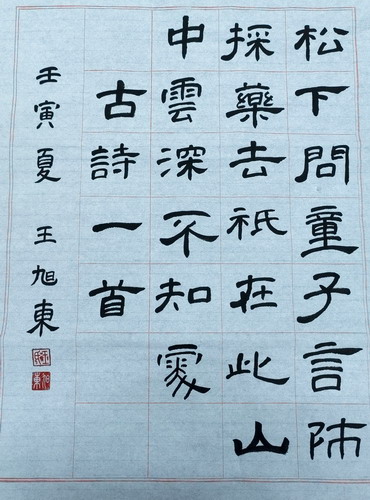 松下問童子言師
採藥去祇在此山
中雲深不知處
古詩一首
壬寅夏 王旭東